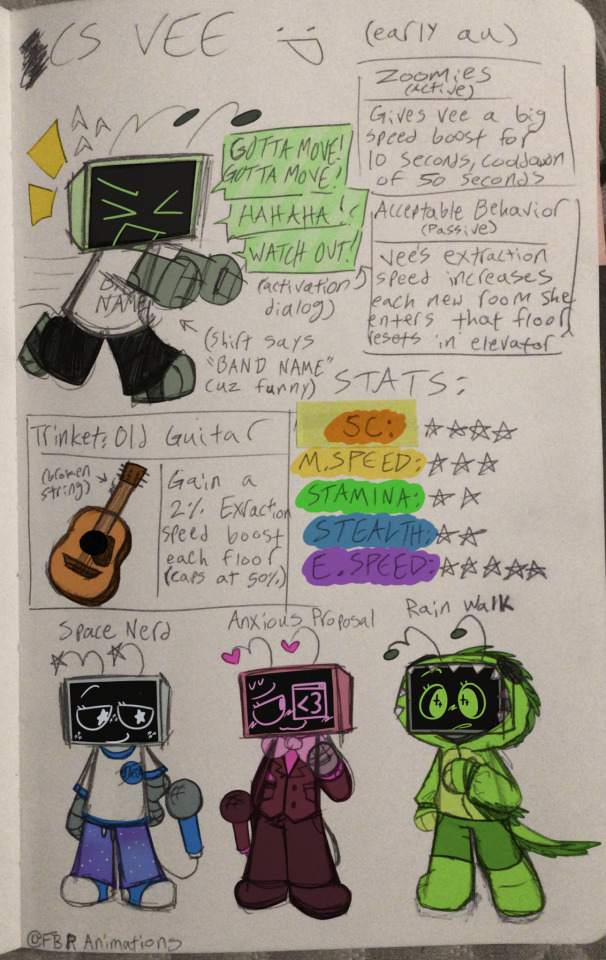 CS VEE :)
(early au)
Zoomies
(Active)
Gives vee a big
speed boost for
10 seconds, cooldown
of 50 seconds
GOTTA MOVE!
GOTTA MOVE!
HAHAHA!
WATCH OUT!
(activation
dialog)
Acceptable Behavior
(Passive)
Vee's extraction
speed increases
each new room she
enters that floor,
resets in elevator
BAND
NAME
(shirt says
"BAND NAME"
cuz funny)
STATS:
SC:
M.SPEED:
STAMINA:
STEALTH:
E.SPEED:
Trinket: Old Guitar
(broken
string)
Gain a
2% Exraction
speed boost
each floor
(caps at 50%)
Space Nerd
Anxious Proposal
<3
Rain Walk
@FBR Animations